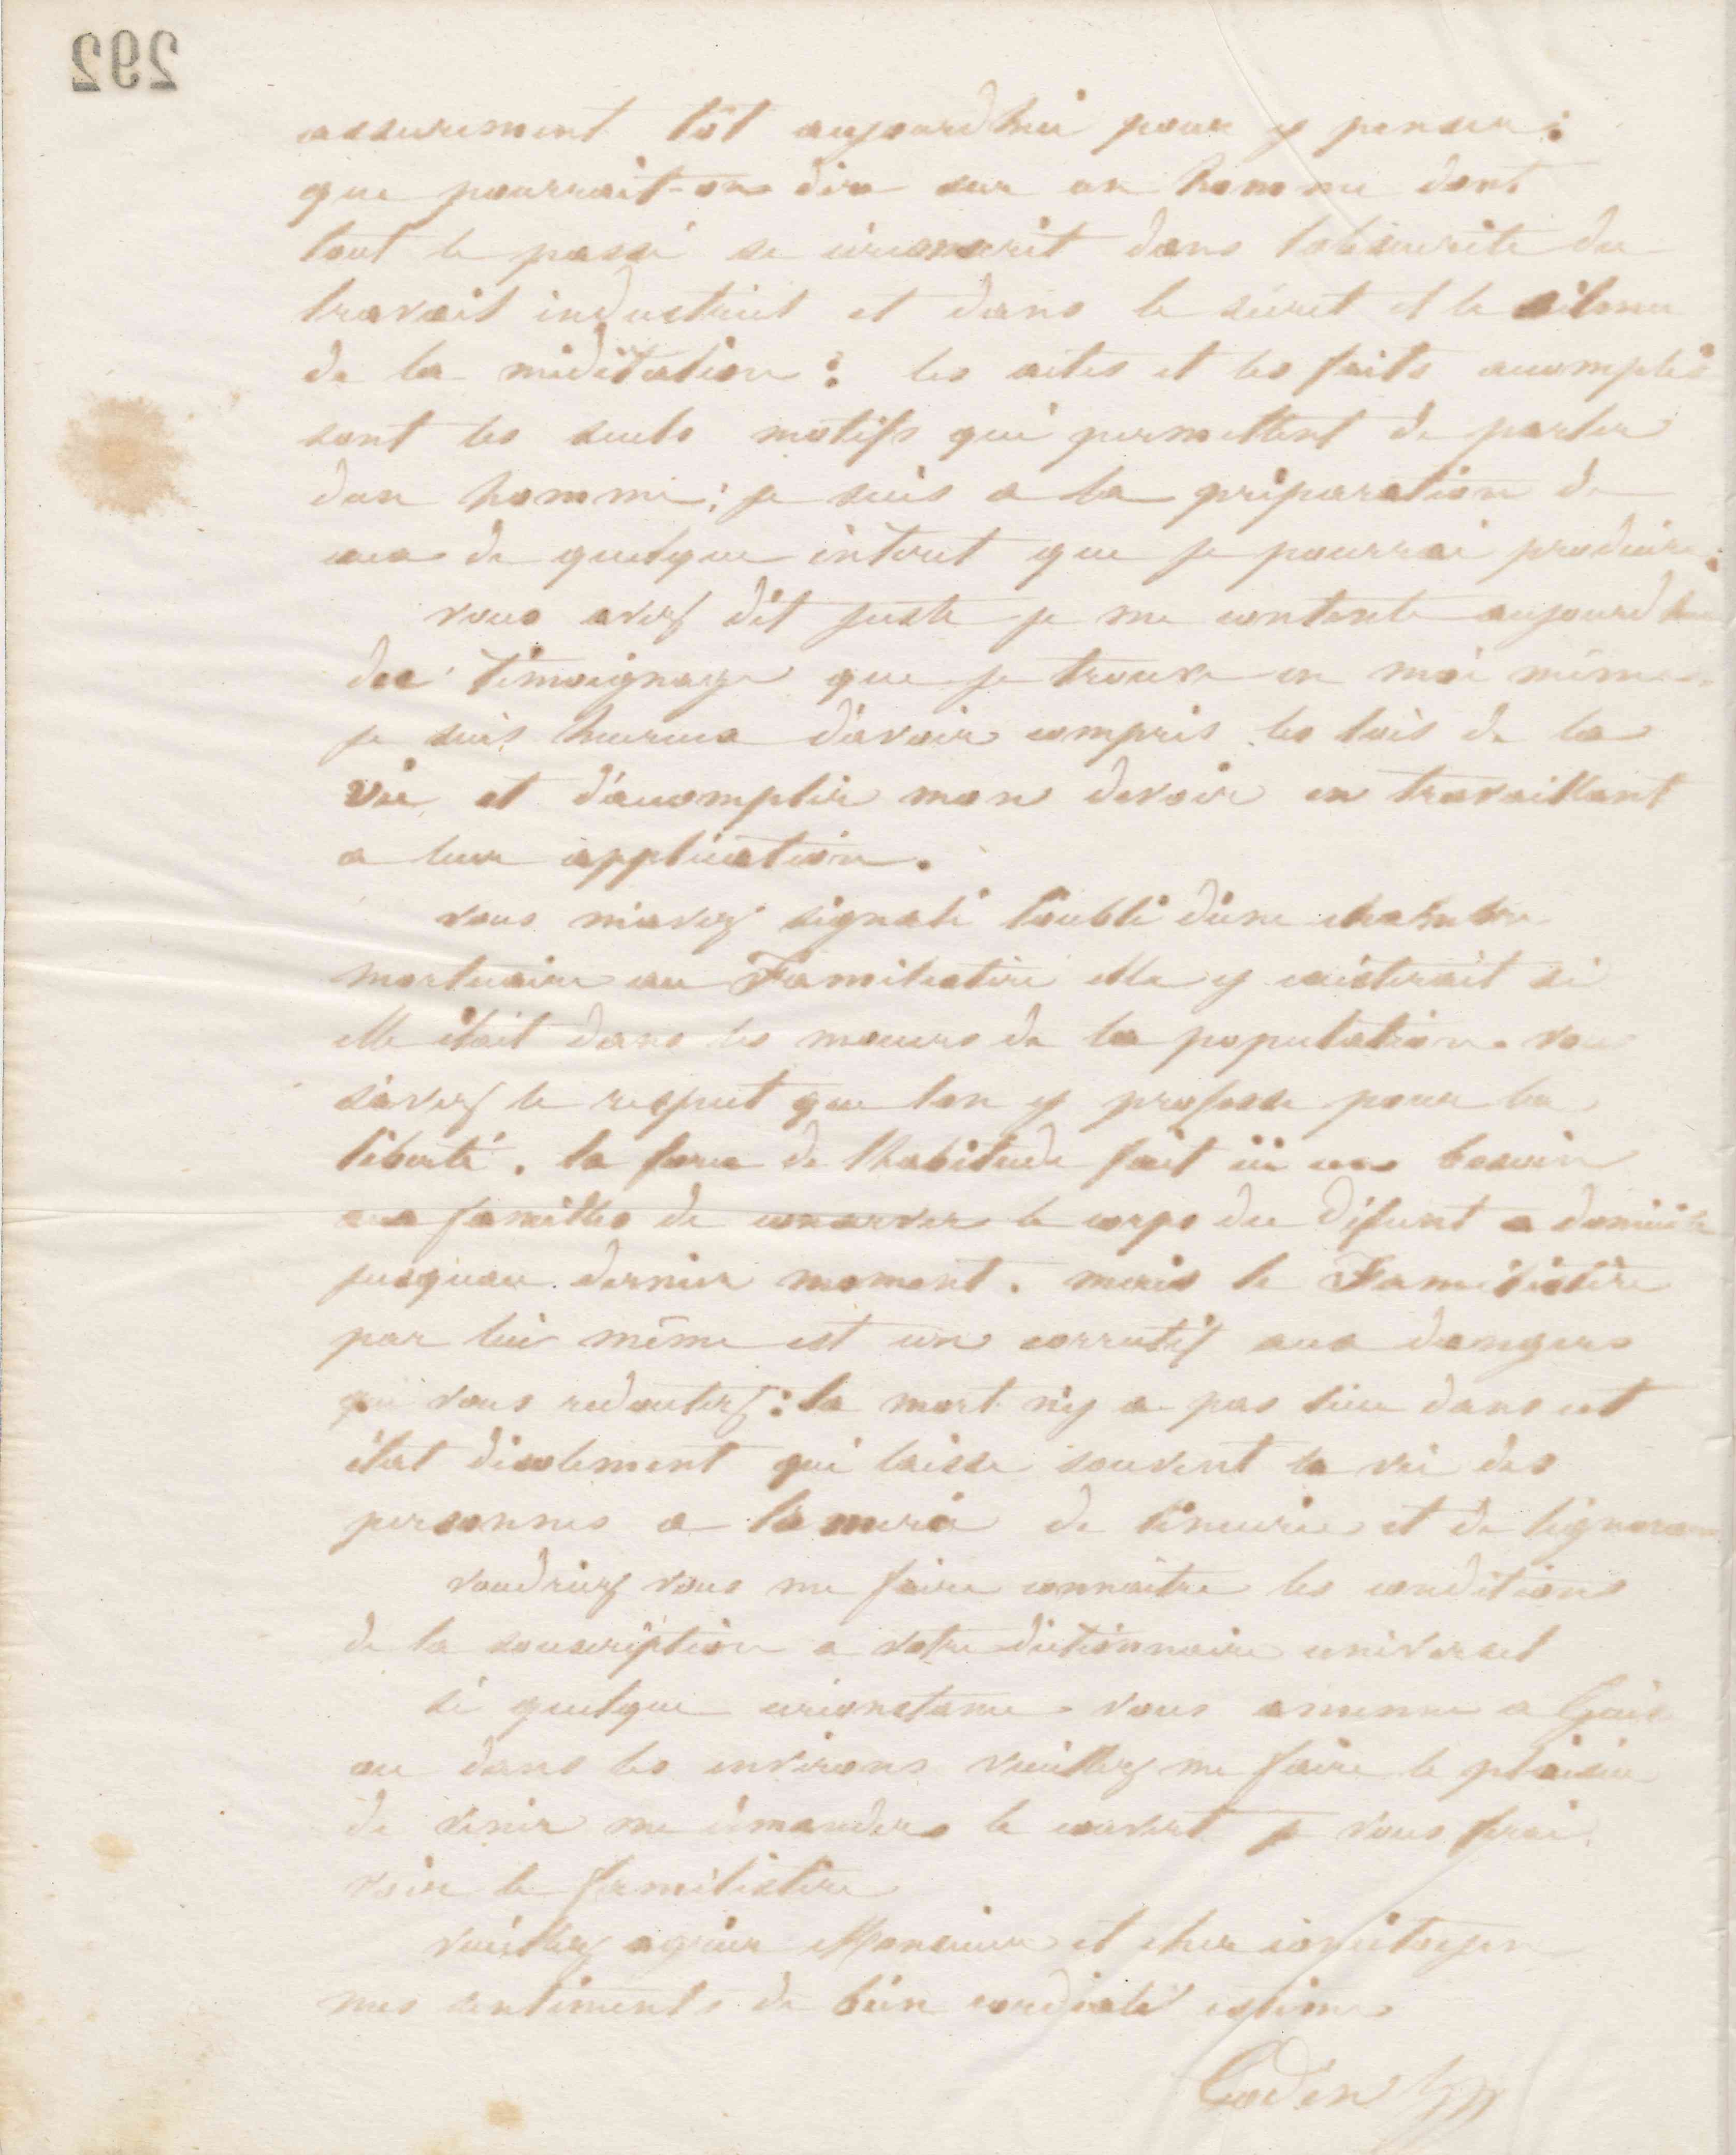 292
assurement tôt aujourdhui pour y penser :
que pourrait-on dire sur un homme dont
tout le passé se circonscrit dans lobscurité du
travail industriel et dans le secret et le silence
de la méditation : les actes et les faits accomplis
sont les seuls motifs qui permettent de parler
dun homme ; je suis a la préparation de
ceux de quelque intéret que je pourrai produire.
vous avez dit juste je me contente aujourdhui
du témoignage que je trouve en moi même
je suis heureux d'avoir compris les lois de la
vie et d'accomplir mon devoir en travaillant
a leur application.
vous m'avez signalé l'oubli d'une chambre
mortuaire au Familistère elle y existerait si
elle était dans les moeurs de la population. vous
savez le respect que lon y professe pour la
liberté. la force de lhabitude fait ici un besoin
aux familles de conserver le corps du défunt a domicile
jusquau dernier moment. mais le Familistère
par lui même est un correctif aux dangers
que vous redoutez : la mort n'y a pas lieu dans cet
état d'isolement qui laisse souvent la vie des
personnes a la merci de lincurie et de lignorance
voudriez vous me faire connaitre les conditions
de la souscription a votre dictionnaire universel
si quelque circonstance vous amenne a Guise
ou dans les environs veuillez me faire le plaisir
de venir me demander le couvert je vous ferai
voir le familistère
veuillez agréer Monsieur et cher concitoyen
mes sentiments de bien cordiale estime
Godin